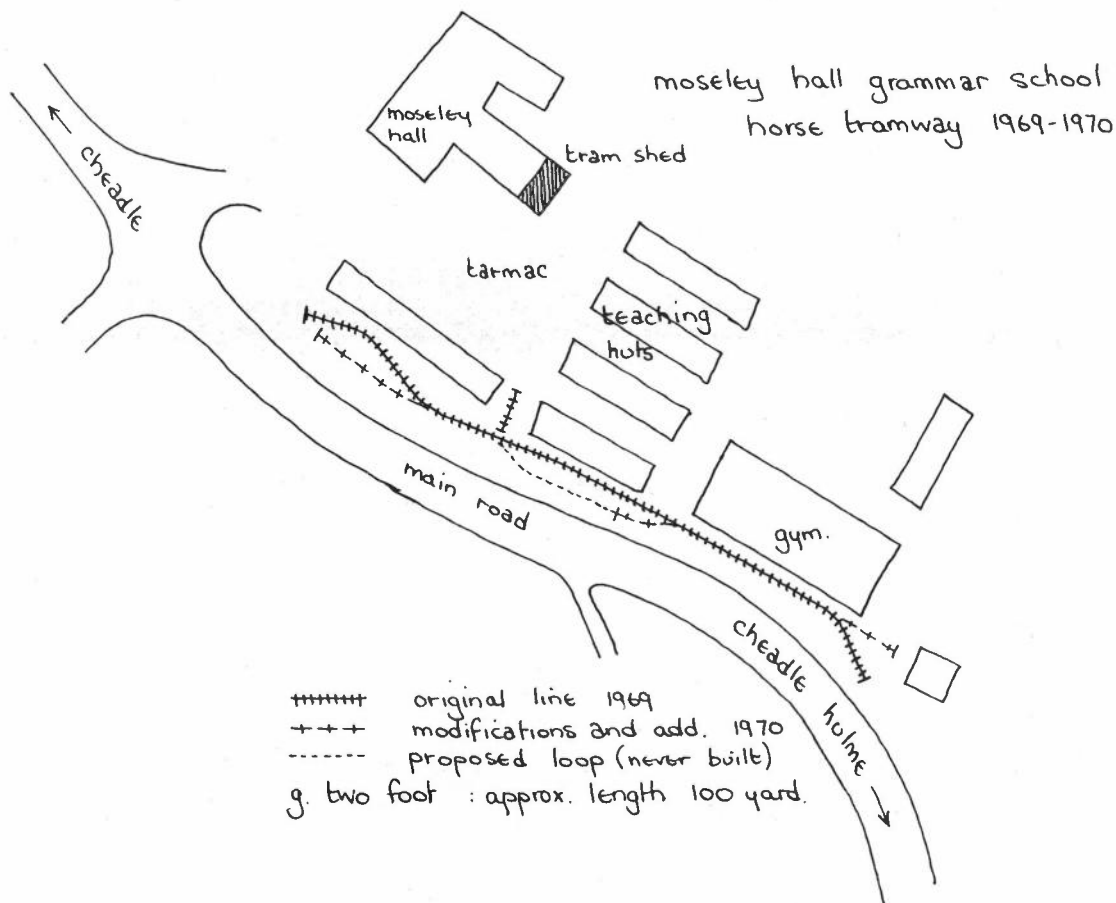 moseley hall grammar school
horse tramway 1969-1970
moseley
hall
tram shed
cheadle
tarmac
teaching
huts
main road
gym.
cheadle hulme
original line 1969
modifications and add. 1970
proposed loop (never built)
g. two foot : approx. length 100 yard.